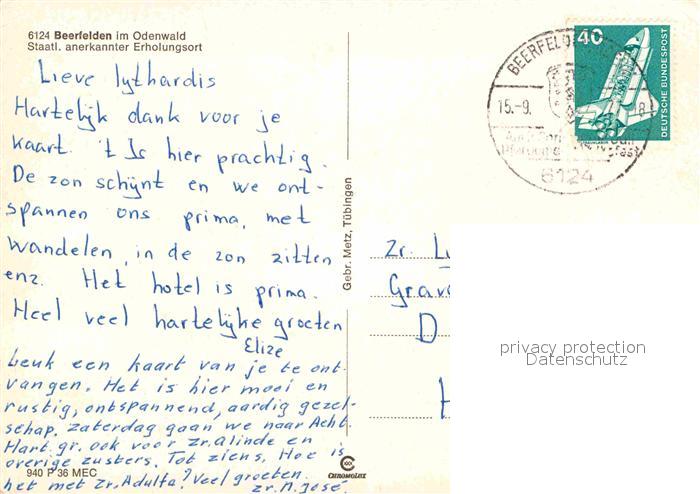 6124 Beerfelden im Odenwald
Staatl. anerkannter Erholungsort
Lieve lythardis
Hartelijk dank voor je
kaart. 't Is hier prachtig.
De zon schijnt en we ont-
spannen ons prima, met
wandelen, in de zon zitten
enz. Het hotel is prima.
Heel veel hartelijke groeten
Elize
Leuk een kaart van je te ont-
vangen. Het is hier mooi en
rustig, ontspannend, aardig gezel-
schap. Zaterdag gaan we naar Acht.
Hart. gr. ook voor zr. Alinde en
overige zusters. Tot ziens. Hoe is
het met zr. Adulfa? Veel groeten.
zr. M. José.
940 P 36 MEC
CHROMOLUX
Gebr. Metz, Tübingen
40
DEUTSCHE BUNDESPOST
15.-9.
6124
zr.
D
H
privacy protection
Datenschutz